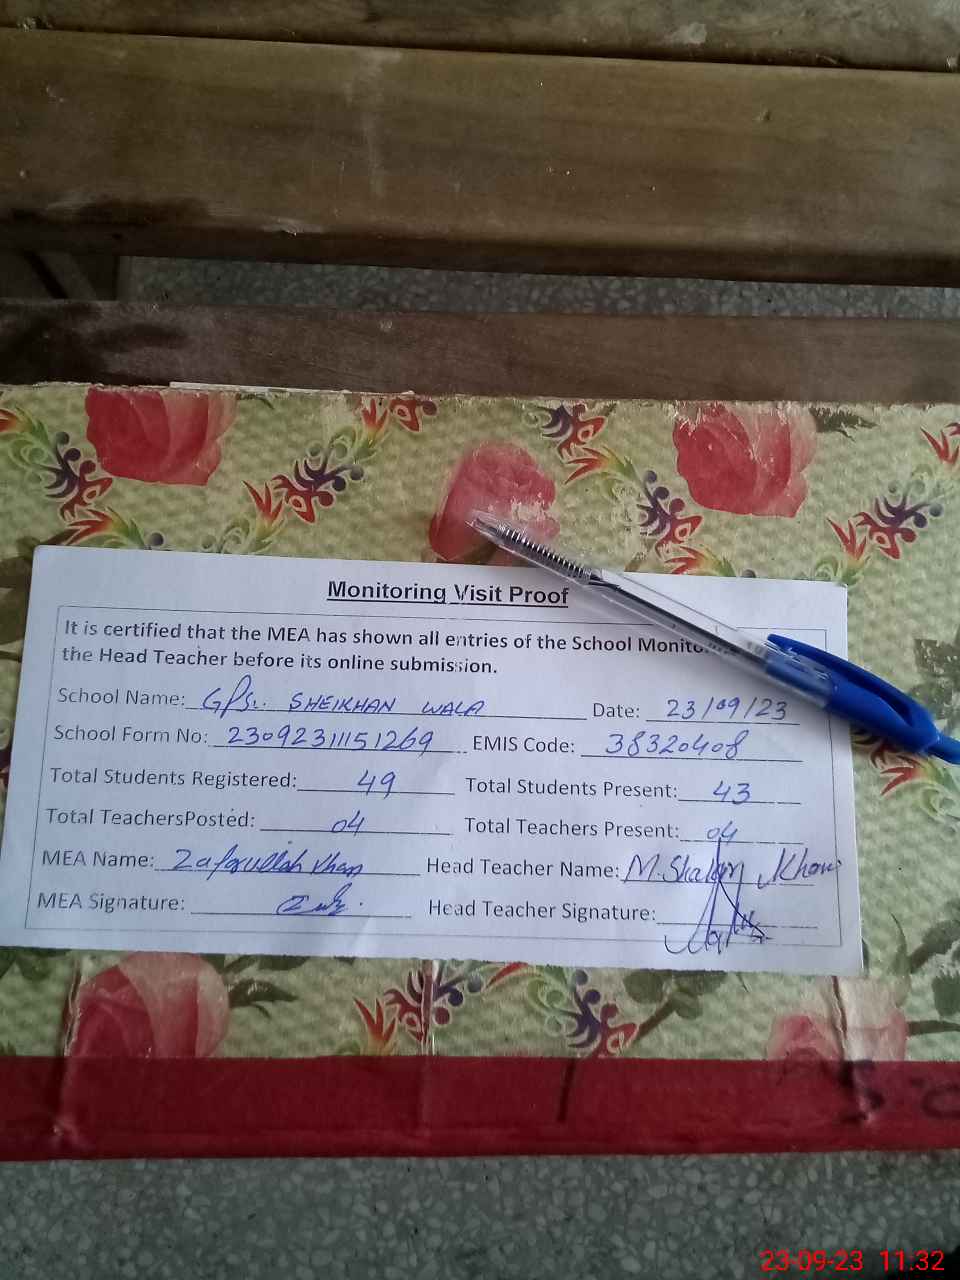 Monitoring Visit Proof
It is certified that the MEA has shown all entries of the School
the Head Teacher before its online submission.
School Name: GPS. SHEIKHAN WALA Date: 23/09/23
School Form No: 23092311151269 EMIS Code: 38320408
Total Students Registered: 49 Total Students Present: 43
Total TeachersPosted: 04 Total Teachers Present: 04
MEA Name: Zafarullah Khan Head Teacher Name: M. Khan
MEA Signature: Head Teacher Signature:
23-09-23 11:32